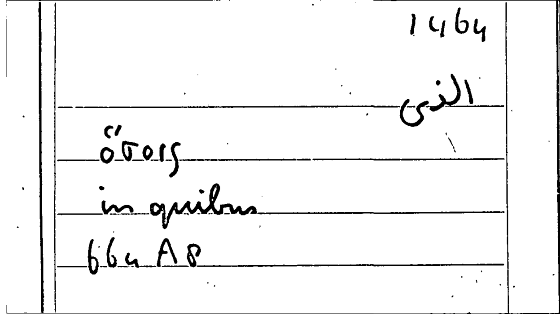 1464
الذى
ὅτοις
in quibus
664 A8